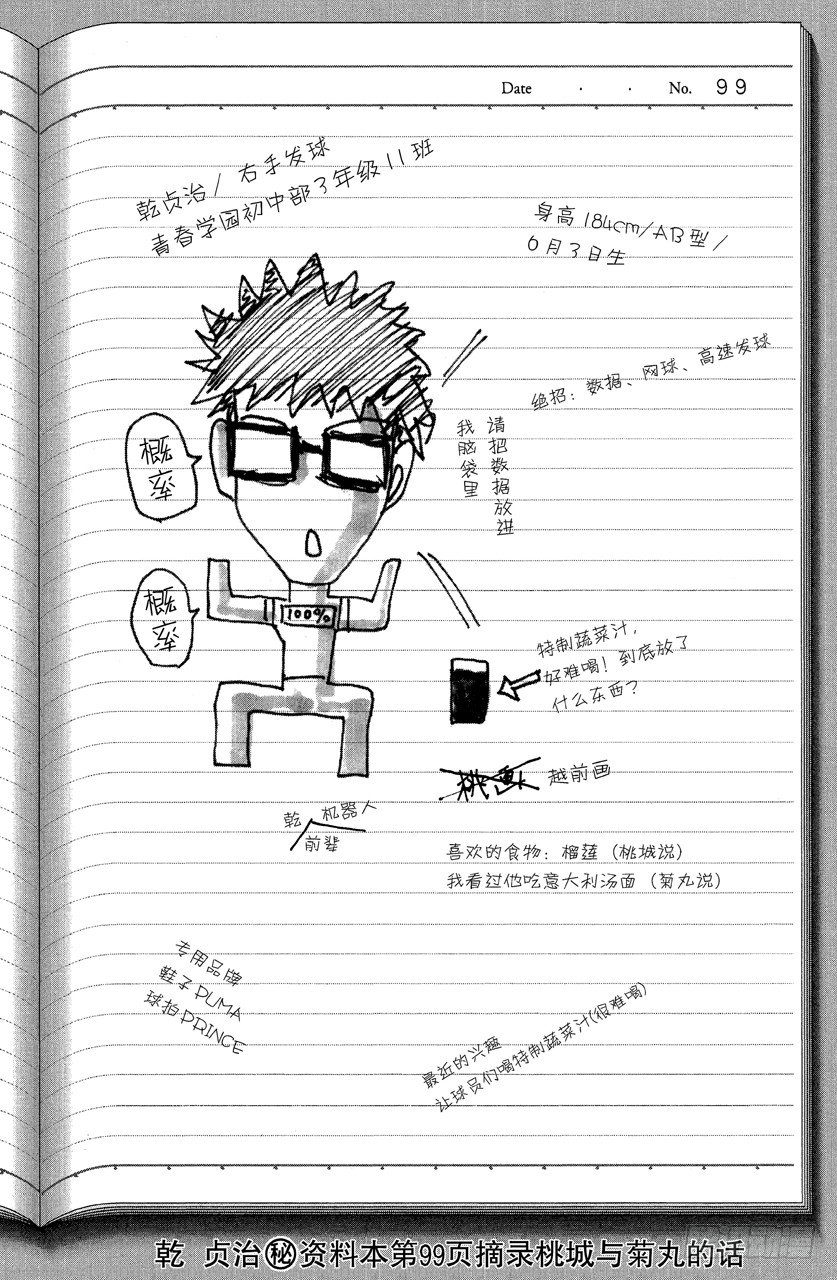 Date . . No. 99
乾贞治/右手发球
青春学园初中部3年级11班
身高184cm/AB型/
6月3日生
绝招：数据、网球、高速发球
请把数据放进
我脑袋里
概率
概率
100%
特制蔬菜汁，
好难喝！到底放了
什么东西？
桃画
越前画
乾 机器人
前辈
喜欢的食物：榴莲（桃城说）
我看过他吃意大利汤面（菊丸说）
专用品牌
鞋子PUMA
球拍PRINCE
最近的兴趣
让球员们喝特制蔬菜汁(很难喝)
乾 贞治㊙资料本第99页摘录桃城与菊丸的话